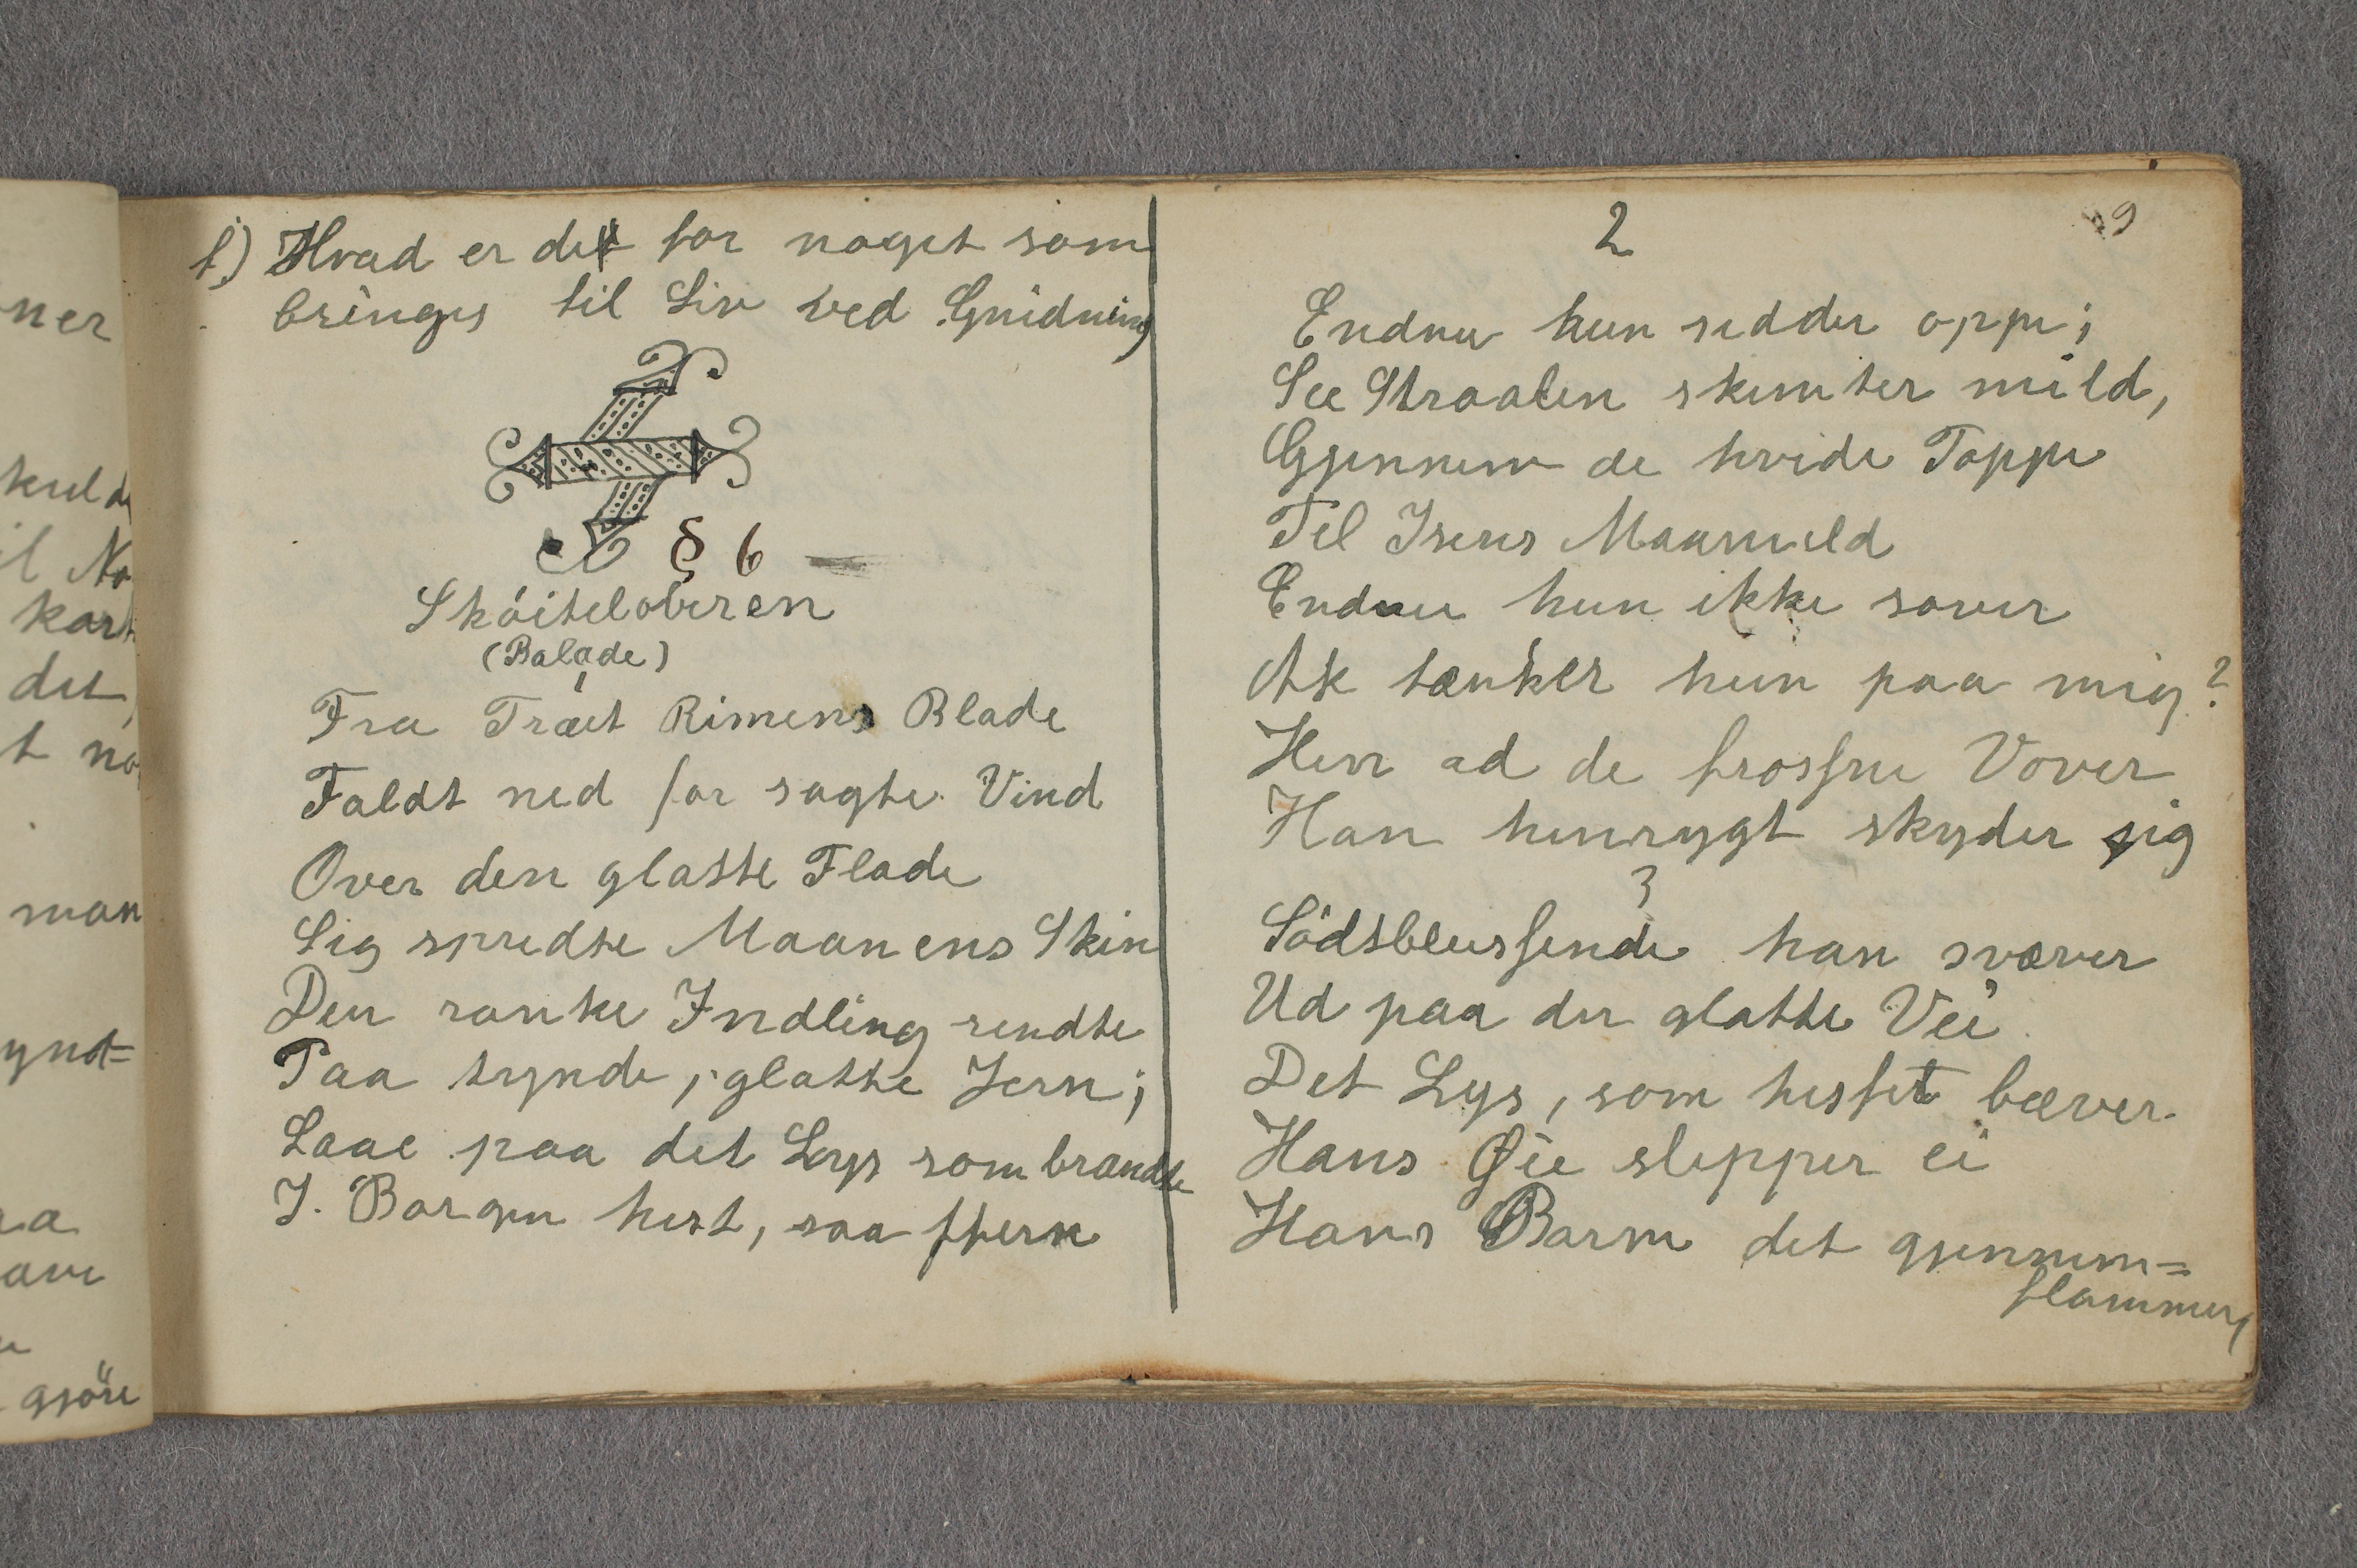 ner
skulde
il No
kart
det,
t no
man
ynd=
aa
ave
gjöre
f) Hvad er det for noget som
bringes til Liv ved Gnidning
§ 6
Sköiteloberen
(Balade)
1
Fra Træet Rimens Blade
Faldt ned for sagte Vind
Over den glatte Flade
Sig spredte Maanens Skin
Den ranke Yndling rendte
Paa tynde, glatte Jern;
Laae paa det Lys som brændte
I. Borgen hist, saa fjern
29
2
Endnu hun sidder oppe;
See Straalen skimter mild,
Gjennem de hvide Toppe
Til Isens Maaneild
Endnu hun ikke sover
Ak tænker hun paa mig?
Hen ad de frosfne Vover
Han henrygt skyder sig
3
Södtblussende han svæver
Ud paa den glatte Vei
Det Lys, som hisset bæver
Hans Øie slipper ei
Hans Barm det gjennem=
flammer,